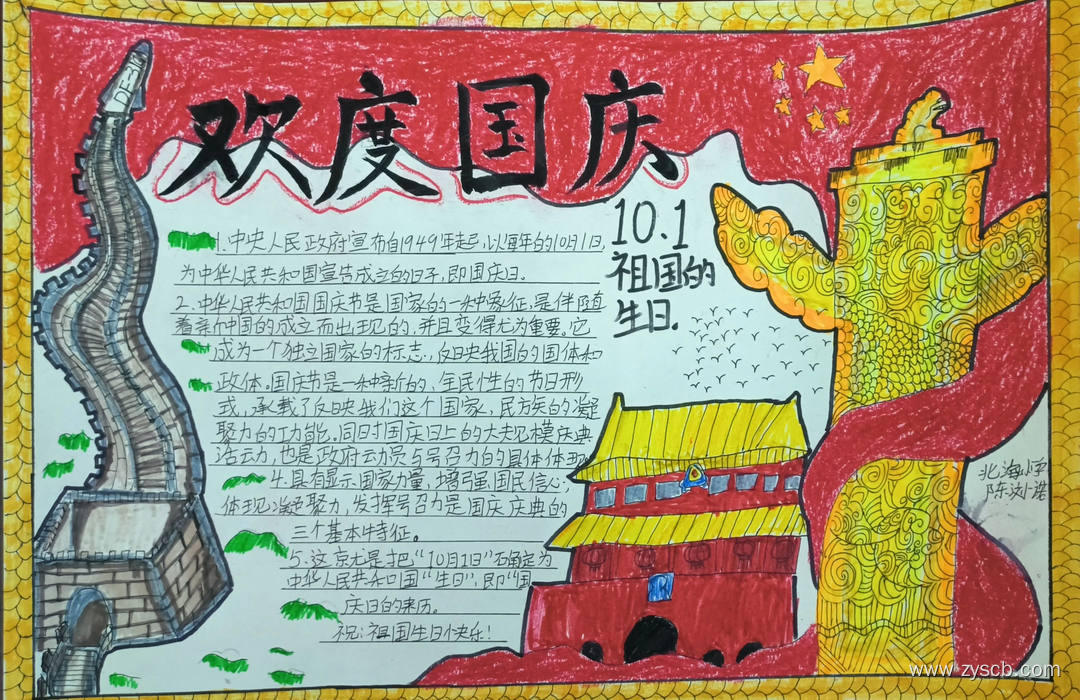 欢度国庆
10.1
祖国的
生日.
1.中央人民政府宣布自1949年起,以每年的10月1日,
为中华人民共和国宣告成立的日子,即国庆日.
2.中华人民共和国国庆节是国家的一种象征,是伴随
着新中国的成立而出现的,并且变得尤为重要。它
成为一个独立国家的标志,反映我国的国体和
政体。国庆节是一种新的、全民性的节日形
式,承载了反映我们这个国家,民族的凝
聚力的功能。同时国庆日上的大规模庆典
活动,也是政府动员与号召力的具体体现
4.具有显示国家力量,增强国民信心,
体现凝聚力,发挥号召力是国庆庆典的
三个基本特征。
5.这就是把“10月1日”确定为
中华人民共和国“生日”,即“国
庆日的来历。
祝:祖国生日快乐!
北海小学
www.zyscb.com